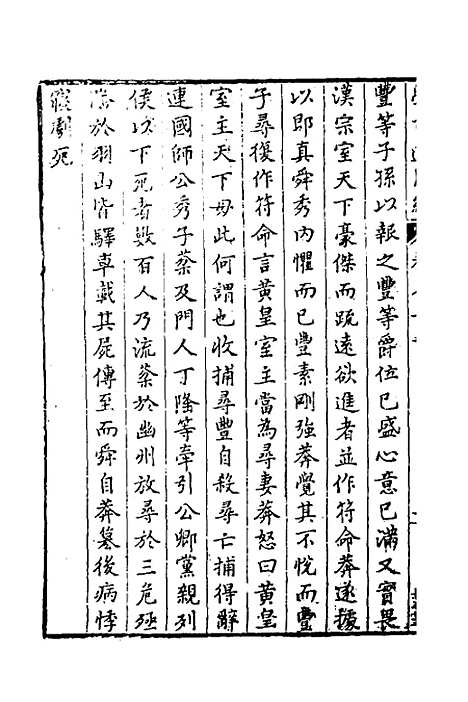 豐等子孫以報之豐等爵位已盛心意已滿又實畏
漢宗室天下豪傑而疏遠欲進者並作符命莽遂據
以即真舜秀內懼而已豐素剛強莽覺其不悅而豐
子尋復作符命言黃皇室主當為尋妻莽怒曰黃皇
室主天下母此何謂也收捕尋豐自殺尋亡捕得辭
連國師公秀子棻及門人丁隆等牽引公卿黨親列
侯以下死者數百人乃流棻於幽州放尋於三危殛
隆於羽山皆驛車載其屍傳至而舜自莽篡後病悸
寖劇死